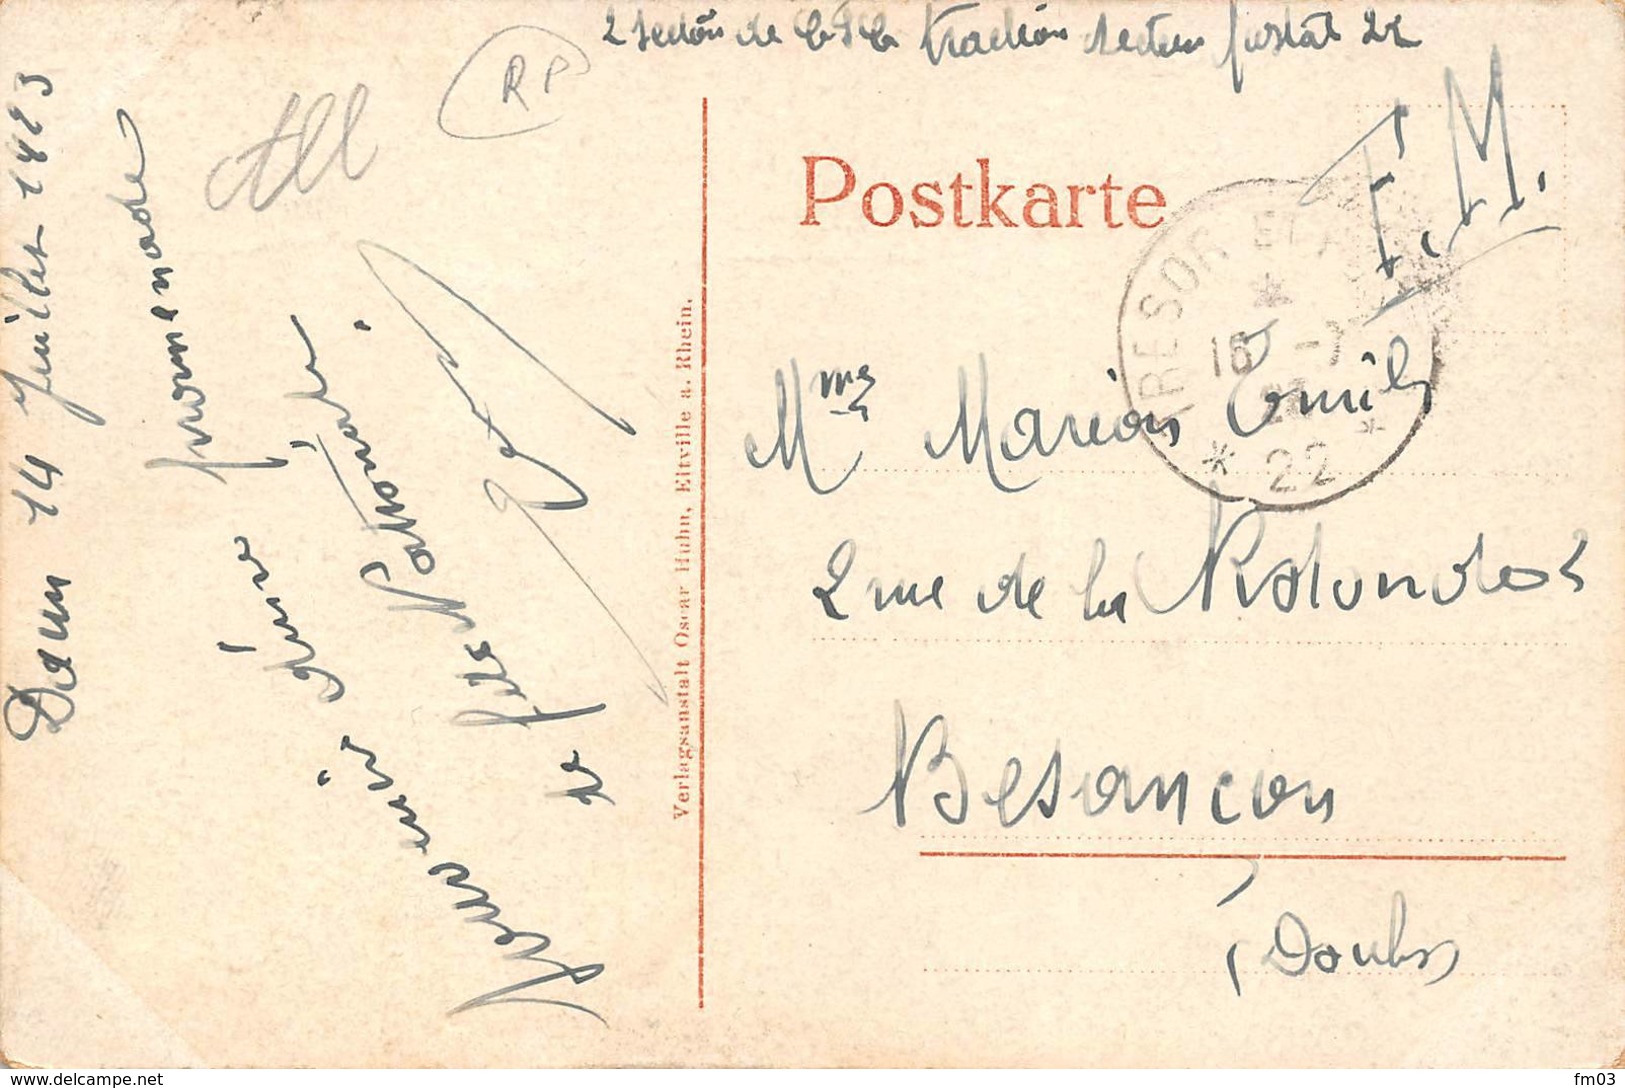 2 section de C.V.C. traction secteur postal 22
RP
All
Postkarte
F.M.
TRESOR ET
16 -7
22
Mme Marion Emile
2 rue de la Rotonde
Besançon
(Doubs
Verlagsanstalt Oscar Huhn, Eltville a. Rhein.
Daun 14 Juillet 1923
Souvenir d'une promenade
fête Nationale
www.delcampe.net
fm03